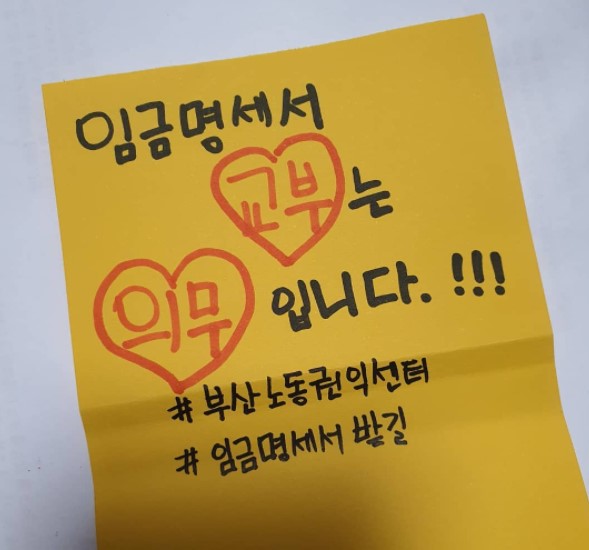 임금명세서
교부는
의무 입니다. !!!
# 부산노동권익센터
# 임금명세서 받길